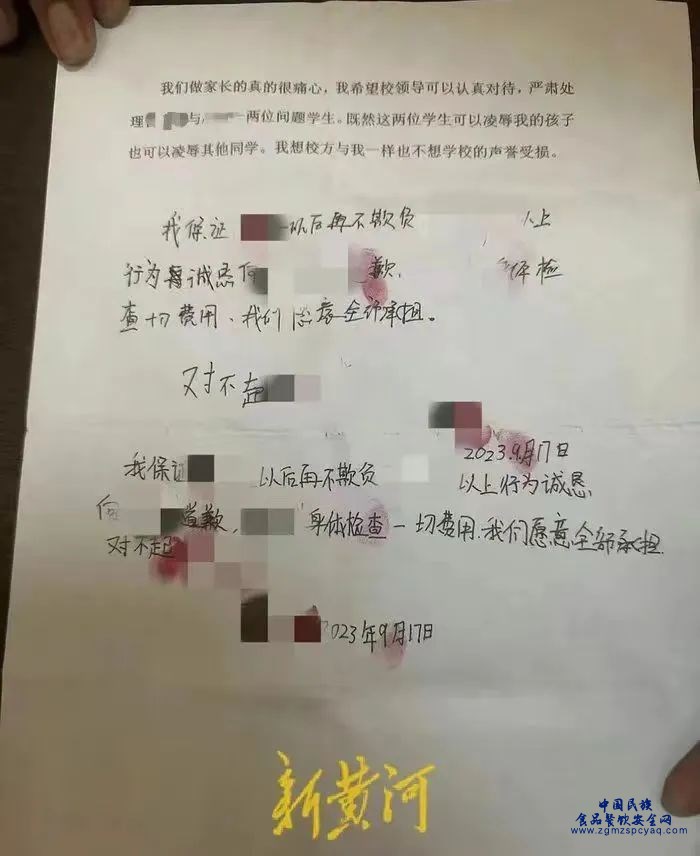 我们做家长的真的很痛心，我希望校领导可以认真对待，严肃处
理 与 两位问题学生。既然这两位学生可以凌辱我的孩子
也可以凌辱其他同学。我想校方与我一样也不想学校的声誉受损。
我保证 以后再不欺负 以上
行为 诚恳向 歉， 体检
查一切费用、我们愿意全部承担。
对不起
2023.9月17日
我保证 以后再不欺负 以上行为诚恳
向 道歉， 身体检查一切费用.我们愿意全部承担.
对不起
2023年9月17日
新黄河
中国民族
食品餐饮安全网
www.zgmzspcyaq.com